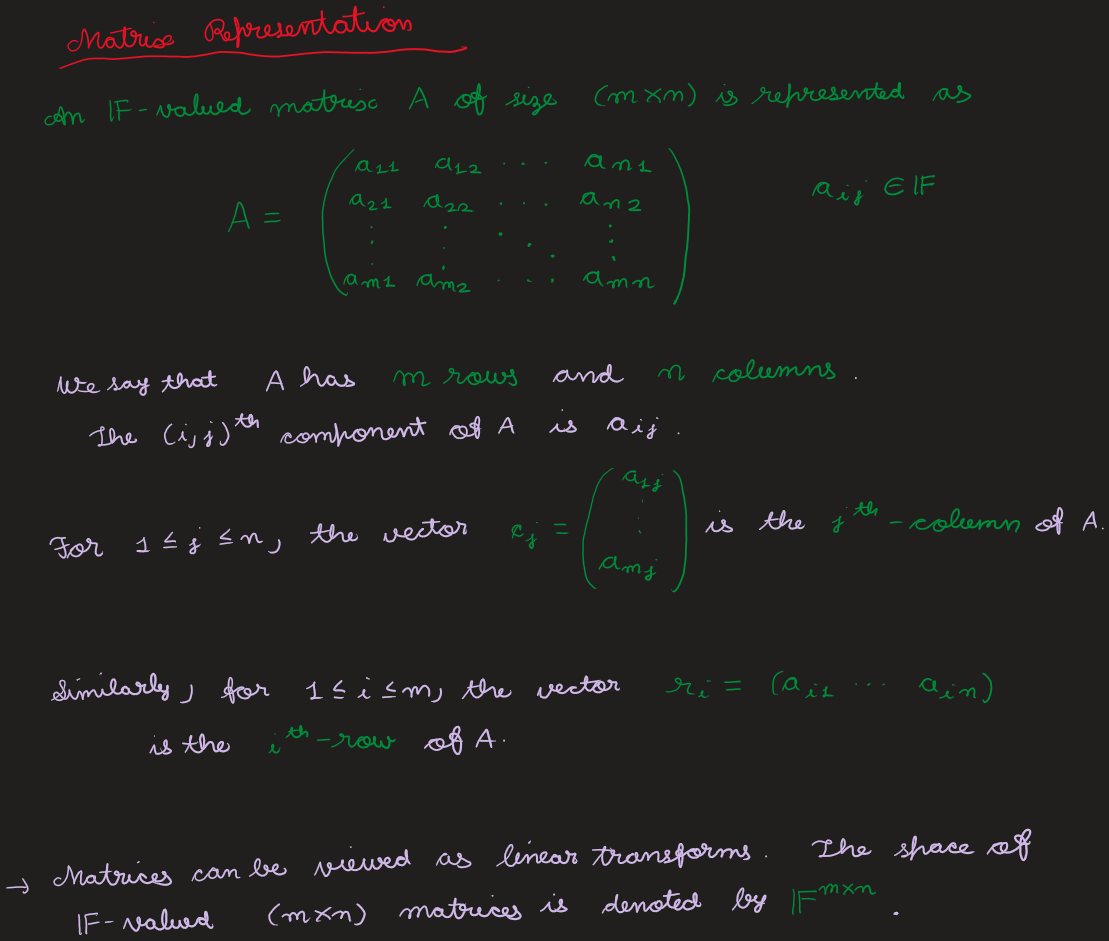 Matrix Representation
An 𝔽-valued matrix A of size (m×n) is represented as
a₁₁ a₁₂ ... aₙ₁
a₂₁ a₂₂ ... aₙ₂
A = ⋮ ⋮ ⋱ ⋮ aᵢⱼ ∈ 𝔽
aₘ₁ aₘ₂ ... aₘₙ
We say that A has m rows and n columns.
The (i,j)ᵗʰ component of A is aᵢⱼ.
For 1 ≤ j ≤ n, the vector cⱼ = (a₁ⱼ ⋮ aₘⱼ) is the jᵗʰ-column of A.
Similarly, for 1 ≤ i ≤ m, the vector rᵢ = (aᵢ₁ ... aᵢₙ)
is the iᵗʰ-row of A.
→ Matrices can be viewed as linear transforms. The space of
𝔽-valued (m×n) matrices is denoted by 𝔽ᵐˣⁿ.